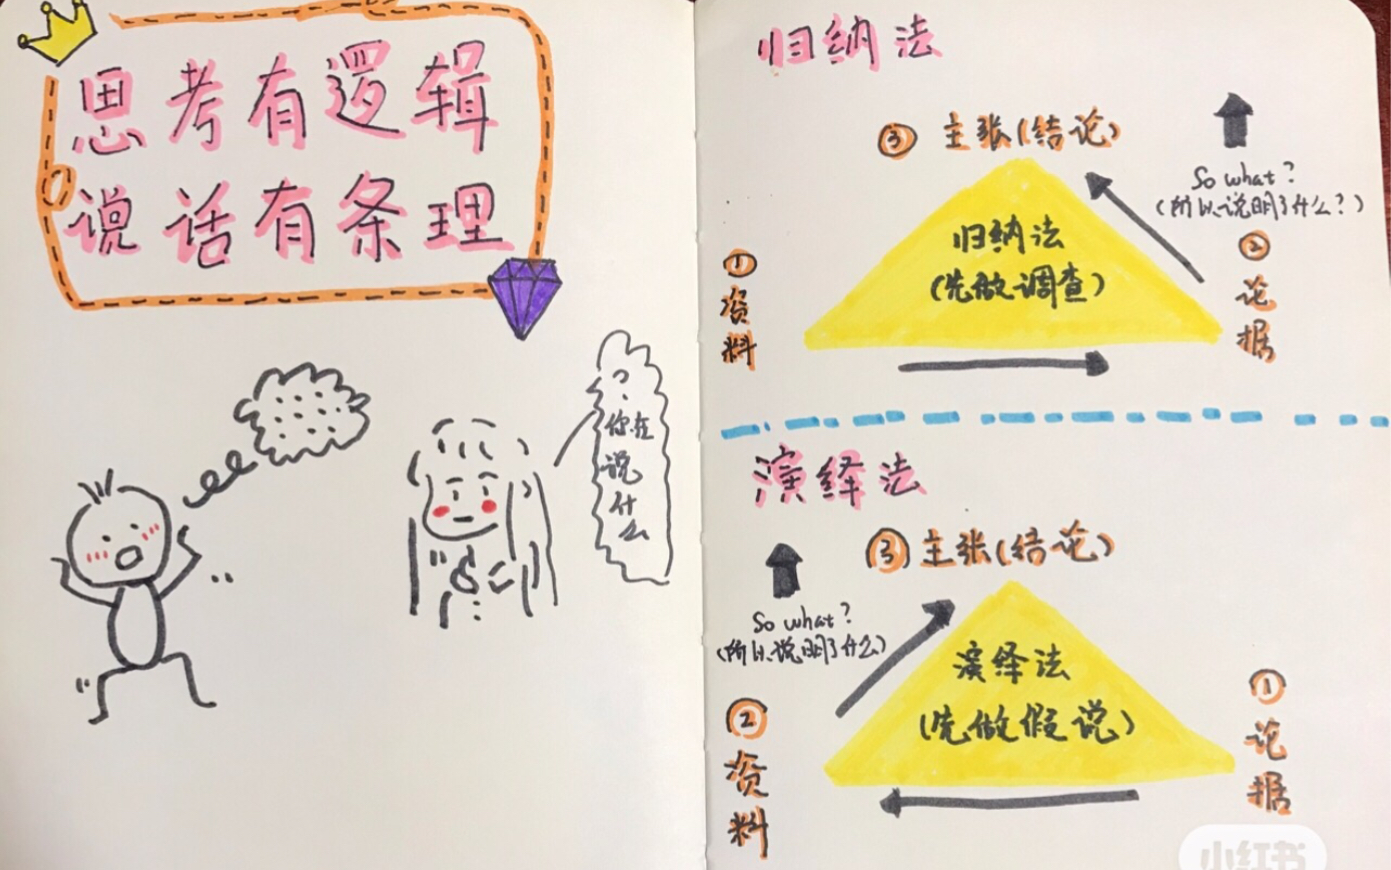 思考有逻辑
说话有条理
?
你在
说
什
么
归纳法
③ 主张(结论)
So what?
(所以说明了什么?)
归纳法
(先做调查)
① 资料
② 论据
演绎法
③ 主张(结论)
So what?
(所以说明了什么)
演绎法
(先做假说)
② 资料
① 论据
小红书